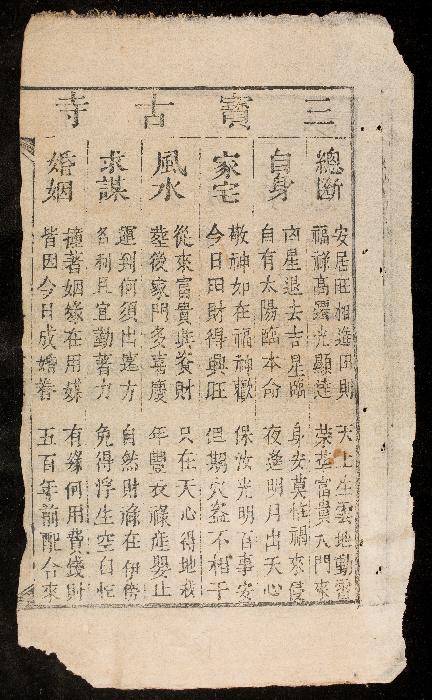 三寶古寺
總斷
安居旺相逢田財 天上生雲地動雷
福祿高遷光顯達 榮華富貴入門來
自身
凶星退去吉星臨 身安莫怪禍來侵
自有太陽臨本命 夜逢明月出天心
家宅
敬神如在福神歡 保汝光明百事安
今日田財得興旺 但期穴盜不相干
風水
從來富貴與資財 只在天心得地栽
塟後家門多喜慶 年豐衣祿産嬰
求謀
運到何須出遠方 自然財祿在伊傍
名利且宜勤著力 免得浮生空自忙
婚姻
撞著姻緣在用媒 有緣何用費錢財
皆因今日成婚眷 五百年前配合來